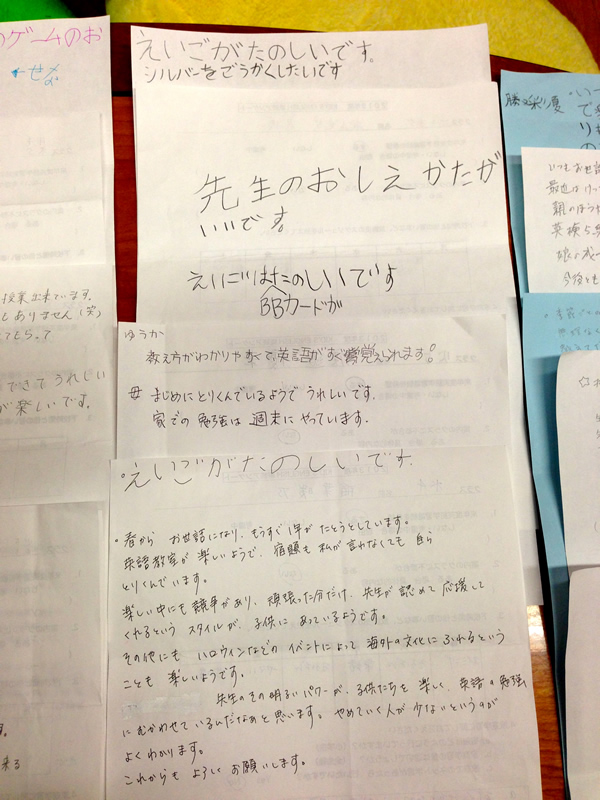 のゲームのお
えいごがたのしいです。
シルバーをごうかくしたいです
先生のおしえかたが
いいです。
えいごはたのしいです
BBカードが
ゆうか
教え方がわかりやすくて、英語がすぐ覚えられます!
母 まじめにとりくんでいるようで うれしいです。
家での 勉強は 週末に やっています。
°えいごがたのしいです。
。春から お世話になり、もうすぐ1年が たとうとしています。
英語教室が 楽しいようで、宿題も 私が 言わなくても 自ら
とりくんでいます。
楽しい中にも 競争があり、頑張った分だけ、先生が 認めて 応援して
くれるという スタイルが、子供に あっているようです。
その他にも ハロウィンなどの イベントによって 海外の文化に ふれるという
ことも 楽しいようです。
先生のその明るいパワーが、子供たちを 楽しく、英語の勉強
に むかわせているんだなぁと思います。やめていく人が 少ないというのが
よくわかります。
これからも よろしく お願いします。
授業出来ています。
もありません(笑)
できて うれしい
が楽しいです。
す。
来る
いつもお世話
最近は
朝のほう
英検5
今後とも